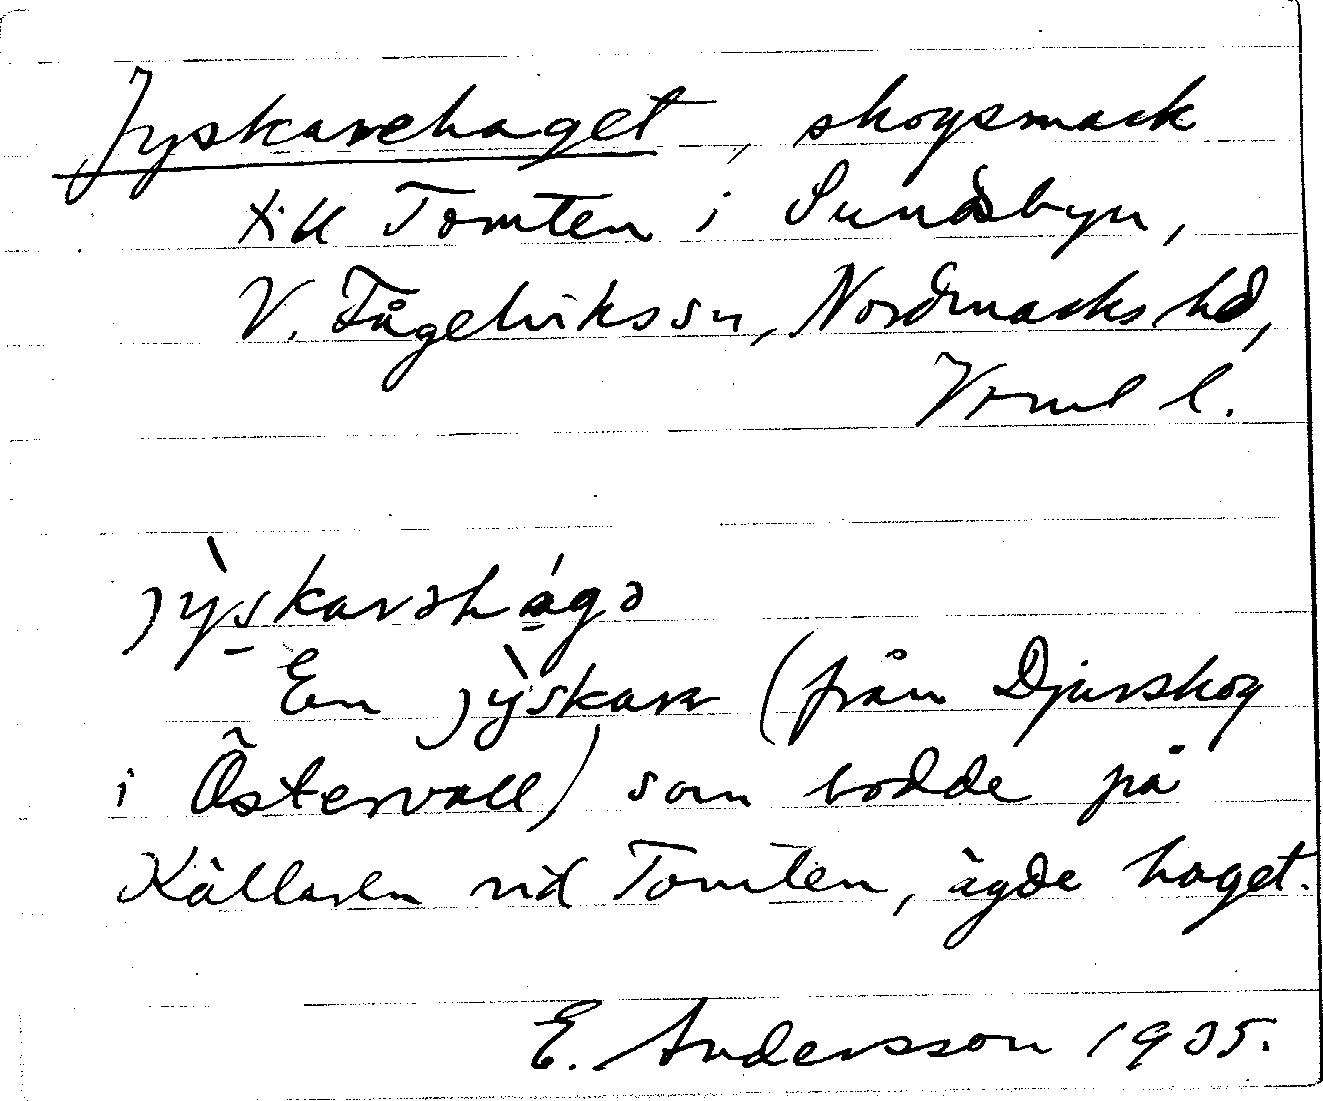 Jyskarehaget, skogsmark
till Tomten i Sundsbyn,
V. Fågelvikssn, Nordmarks hd,
Vrml l.
jỳskarəhágə
En jỳskar (från Djurskog
i Östervall) som bodde på
Källaren vid Tomten, ägde haget.
E. Andersson 1935.